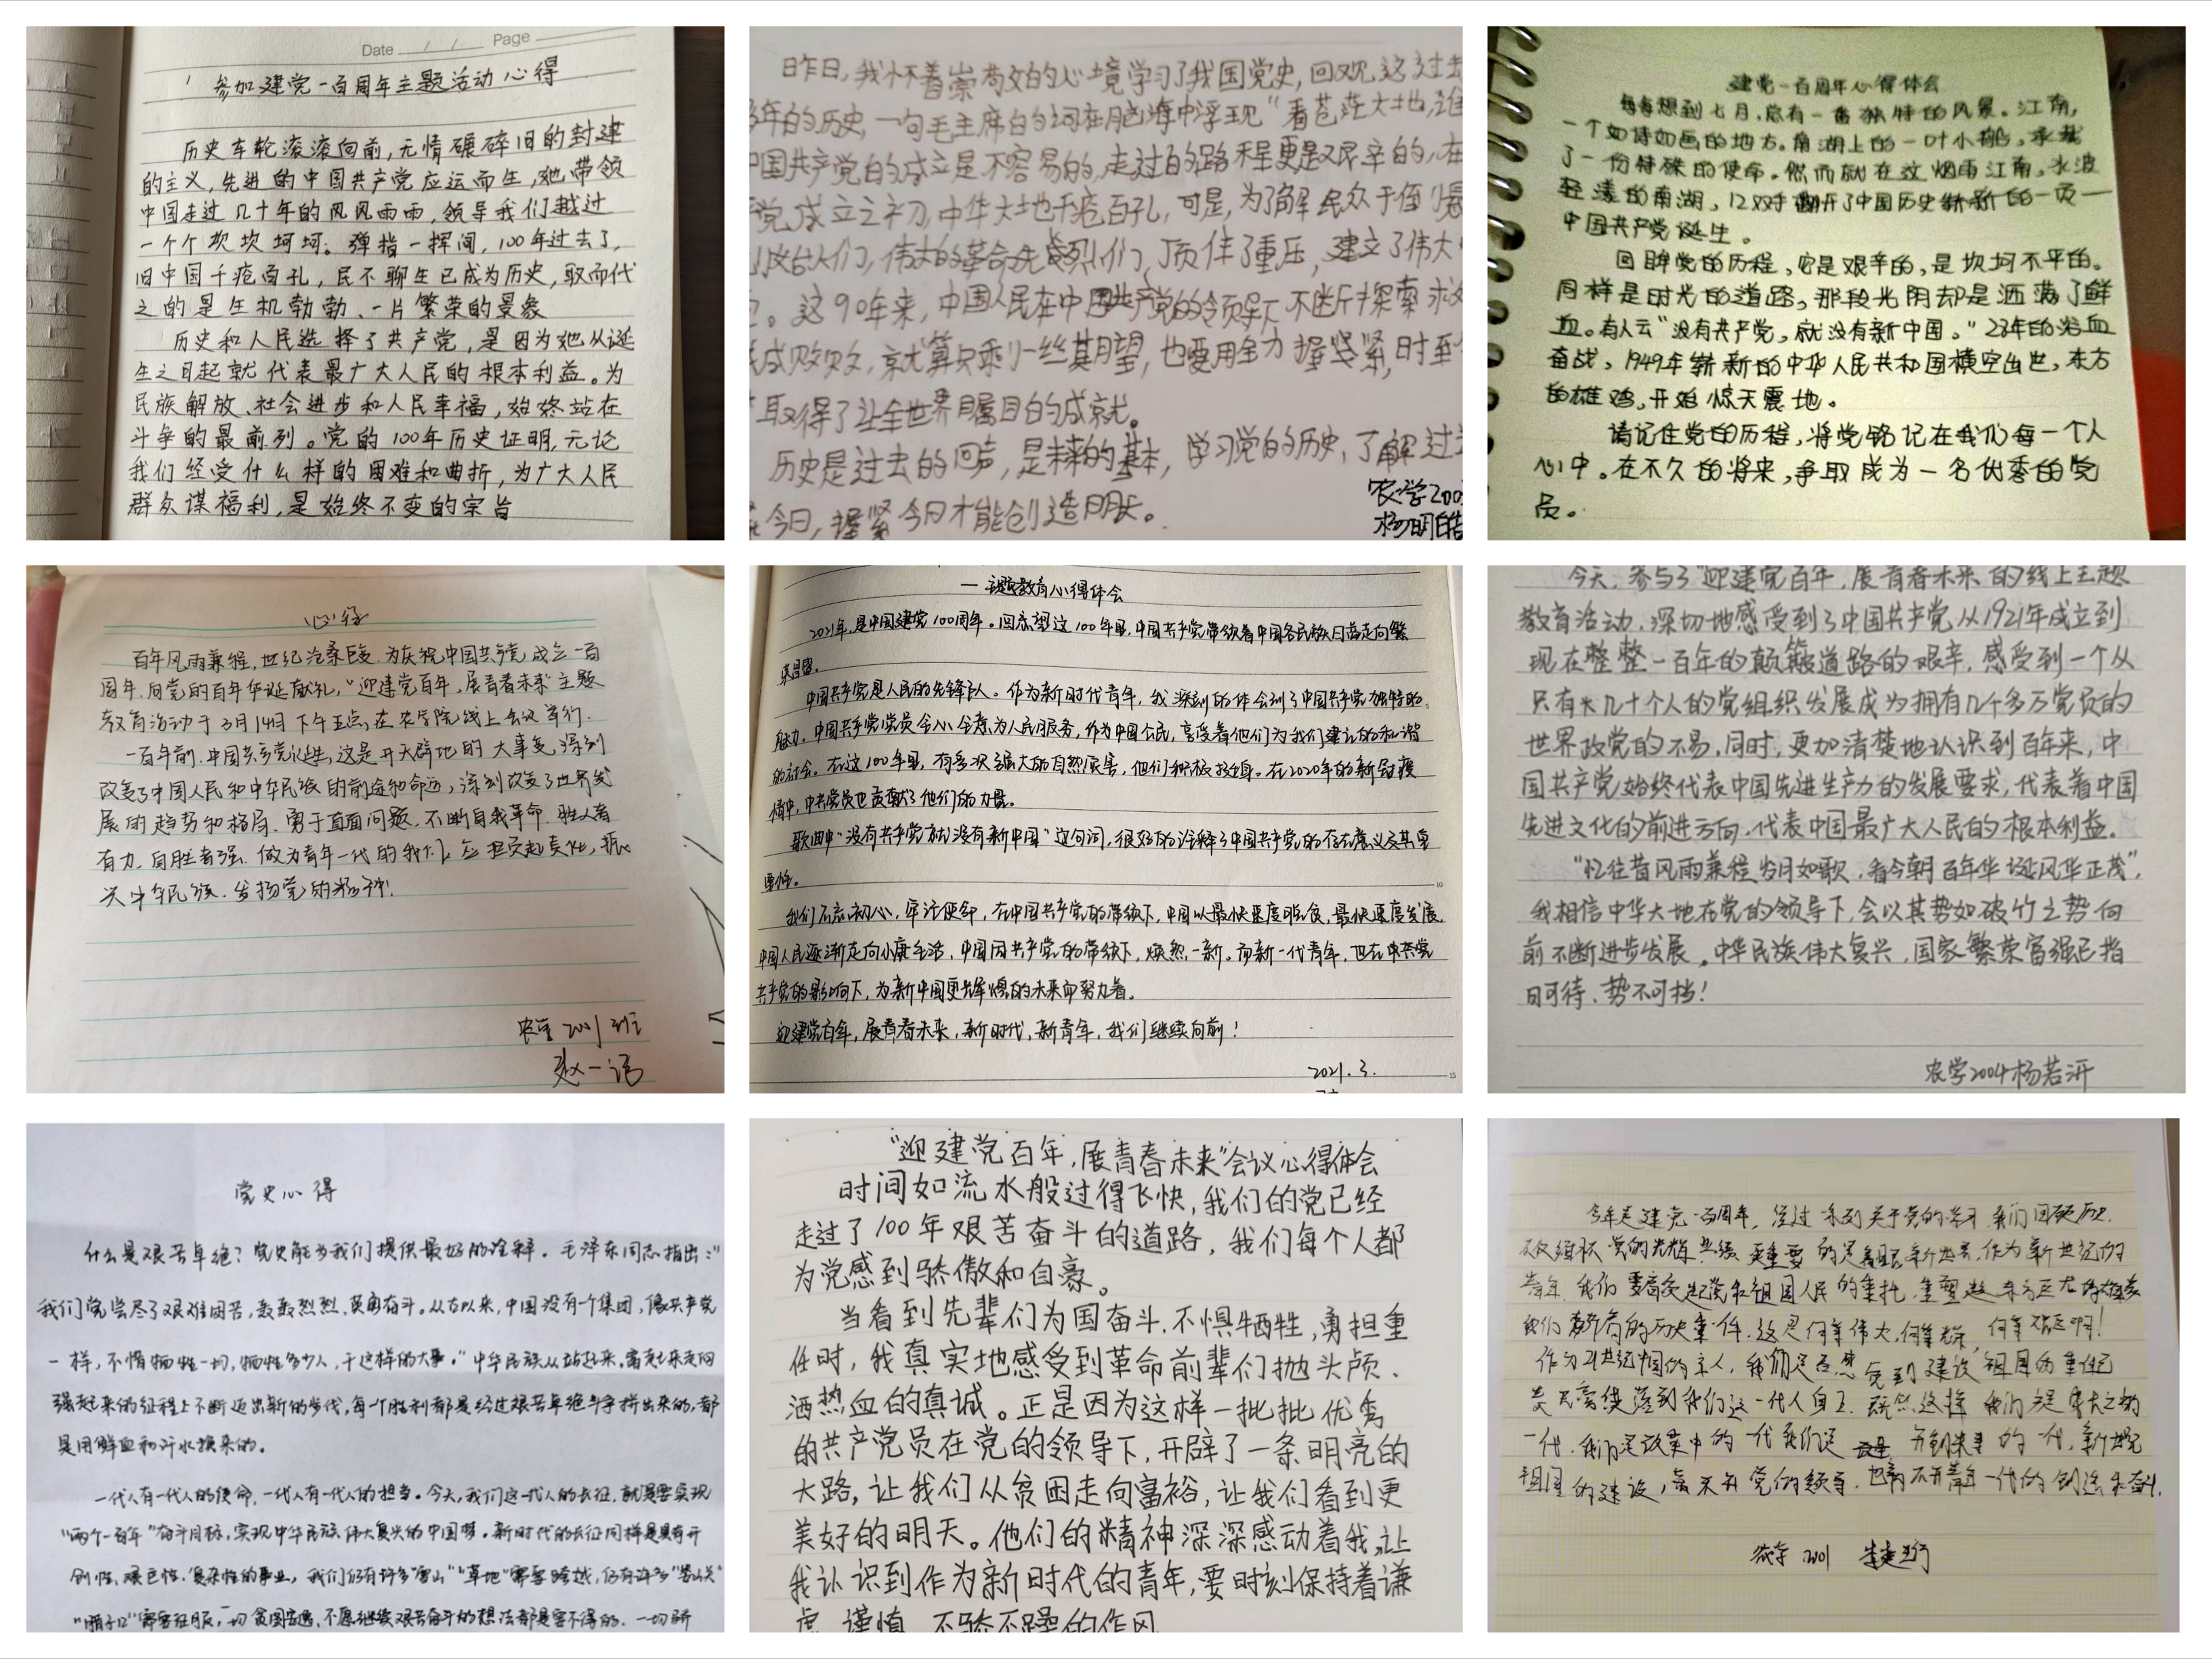 Date / / Page
参加建党一百周年主题活动心得
历史车轮滚滚向前,无情碾碎旧的封建
的主义,先进的中国共产党应运而生,她带领
中国走过几十年的风风雨雨,领导我们越过
一个个坎坎坷坷。弹指一挥间,100年过去了,
旧中国千疮百孔,民不聊生已成为历史,取而代
之的是生机勃勃、一片繁荣的景象
历史和人民选择了共产党,是因为她从诞
生之日起就代表最广大人民的根本利益。为
民族解放、社会进步和人民幸福,始终站在
斗争的最前列。党的100年历史证明,无论
我们经受什么样的困难和曲折,为广大人民
群众谋福利,是始终不变的宗旨
昨日,我怀着崇敬的心境学习了我国党史,回观这过去
年的历史,一句毛主席的词在脑海中浮现"看苍茫大地,谁
中国共产党的成立是不容易的,走过的路程更是艰辛的,在
党成立之初,中华大地千疮百孔,可是,为了解民众于倒悬
们,伟大的革命先烈们,顶住了重压,建立了伟大
。这90年来,中国人民在中国共产党的领导下不断探索求
成败败,就算只剩一丝期望,也要用全力握紧紧,时至
取得了让全世界瞩目的成就。
历史是过去的回声,是未来的基本,学习党的历史,了解过
今日,握紧今日才能创造明天。
农学200
杨明皓
建党一百周年心得体会
每每想到七月,总有一番独特的风景。江南,
一个如诗如画的地方。南湖上的一叶小船,承载
了一份特殊的使命。然而就在这烟雨江南,水波
轻漾的南湖,12双手翻开了中国历史崭新的一页—
中国共产党诞生。
回眸党的历程,它是艰辛的,是坎坷不平的。
同样是时光的道路,那段光阴却是洒满了鲜
血。有人云"没有共产党,就没有新中国。"28年的浴血
奋战,1949年崭新的中华人民共和国横空出世,东方
的雄鸡,开始惊天震地。
请记住党的历程,将党铭记在我们每一个人
心中。在不久的将来,争取成为一名优秀的党
员。
心得
百年风雨兼程,世纪沧桑巨变.为庆祝中国共产党成立一百
周年.向党的百年华诞献礼,"迎建党百年,展青春未来"主题
教育活动于3月14日下午五点,在农学院线上会议举行.
一百年前.中国共产党诞生,这是开天辟地的大事变.深刻
改变了中国人民和中华民族的前途和命运,深刻改变了世界发
展的趋势和格局.勇于直面问题,不断自我革命.胜人者
有力.自胜者强.做为青年一代的我们,应担负起责任,振
兴中华民族.发扬党的精神!
农学2001班
赵一诺
一主题教育心得体会
2021年,是中国建党100周年。回忆望这100年里,中国共产党带领着中国各民族日益走向繁
荣昌盛。
中国共产党是人民的先锋队。作为新时代青年,我深刻的体会到了中国共产党独特的
魅力。中国共产党党员全心全意为人民服务,作为中国公民,享受着他们为我们建设的和谐
的社会。在这100年里,有多次强大的自然灾害,他们积极投身。在2020年的新冠疫
情中,中共党员也贡献了他们的力量。
歌曲中"没有共产党就没有新中国"这句词,很好的诠释了中国共产党的存在意义及其重
要性。
我们不忘初心,牢记使命,在中国共产党的带领下,中国以最快速度脱贫,最快速度发展,
中国人民逐渐走向小康生活,中国因共产党的带领下,焕然一新。而新一代青年,也在中共党
共产党的影响下,为新中国更加辉煌的未来而努力着。
迎建党百年,展青春未来,新时代,新青年,我们继续向前!
2021.3.
今天,参与了"迎建党百年,展青春未来"的线上主题
教育活动,深切地感受到了中国共产党从1921年成立到
现在整整一百年的颠簸道路的艰辛,感受到一个从
只有几十个人的党组织发展成为拥有几千多万党员的
世界政党的不易,同时,更加清楚地认识到百年来,中
国共产党始终代表中国先进生产力的发展要求,代表着中国
先进文化的前进方向,代表中国最广大人民的根本利益。
"忆往昔风雨兼程岁月如歌,看今朝百年华诞风华正茂",
我相信中华大地在党的领导下,会以其势如破竹之势向
前不断进步发展,中华民族伟大复兴,国家繁荣富强已指
日可待、势不可挡!
农学2004杨若沂
党史心得
什么是艰苦卓绝?党史能为我们提供最好的诠释。毛泽东同志指出:"
我们党尝尽了艰难困苦,轰轰烈烈、英勇奋斗。从古以来,中国没有一个集团,像共产党
一样,不惜牺牲一切,牺牲多少人,干这样的大事。"中华民族从站起来、富起来走向
强起来的征程上不断迈出新的步伐,每一个胜利都是经过艰苦卓绝斗争拼出来的,都
是用鲜血和汗水换来的。
一代人有一代人的使命,一代人有一代人的担当。今天,我们这一代人的长征,就是要实现
"两个一百年"奋斗目标,实现中华民族伟大复兴的中国梦。新时代的长征同样是具有开
创性、艰巨性、复杂性的事业,我们仍有许多"雪山""草地"需要跨越,仍有许多"娄山关"
"腊子口"需要征服,一切贪图安逸、不愿继续艰苦奋斗的想法都是要不得的,一切骄
"迎建党百年,展青春未来"会议心得体会
时间如流水般过得飞快,我们的党已经
走过了100年艰苦奋斗的道路,我们每个人都
为党感到骄傲和自豪。
当看到先辈们为国奋斗,不惧牺牲,勇担重
任时,我真实地感受到革命前辈们抛头颅、
洒热血的真诚。正是因为这样一批批优秀
的共产党员在党的领导下,开辟了一条明亮的
大路,让我们从贫困走向富裕,让我们看到更
美好的明天。他们的精神深深感动着我,让
我认识到作为新时代的青年,要时刻保持着谦
虚、谨慎、不骄不躁的作风
今年是建党一百周年,经过一系列关于党的学习,我们回顾历史.
党的光辉业绩更重要的是着眼新世纪,作为新世纪的
青年,我们要肩负起党和祖国人民的重托,重塑起东方巨龙的雄姿
我们肩负着的历史重任,这是何等伟大,何等 何等 啊!
作为21世纪中国的主人,我们是否想受到建设祖国的重任已
责无旁贷落到我们这一代人身上.既然这样,我们是伟大的
一代.我们是改革中的一代,我们是 开创未来的一代.新世纪
祖国的建设,离不开党的领导,也离不开青年一代的创造和奋斗.
农学2001